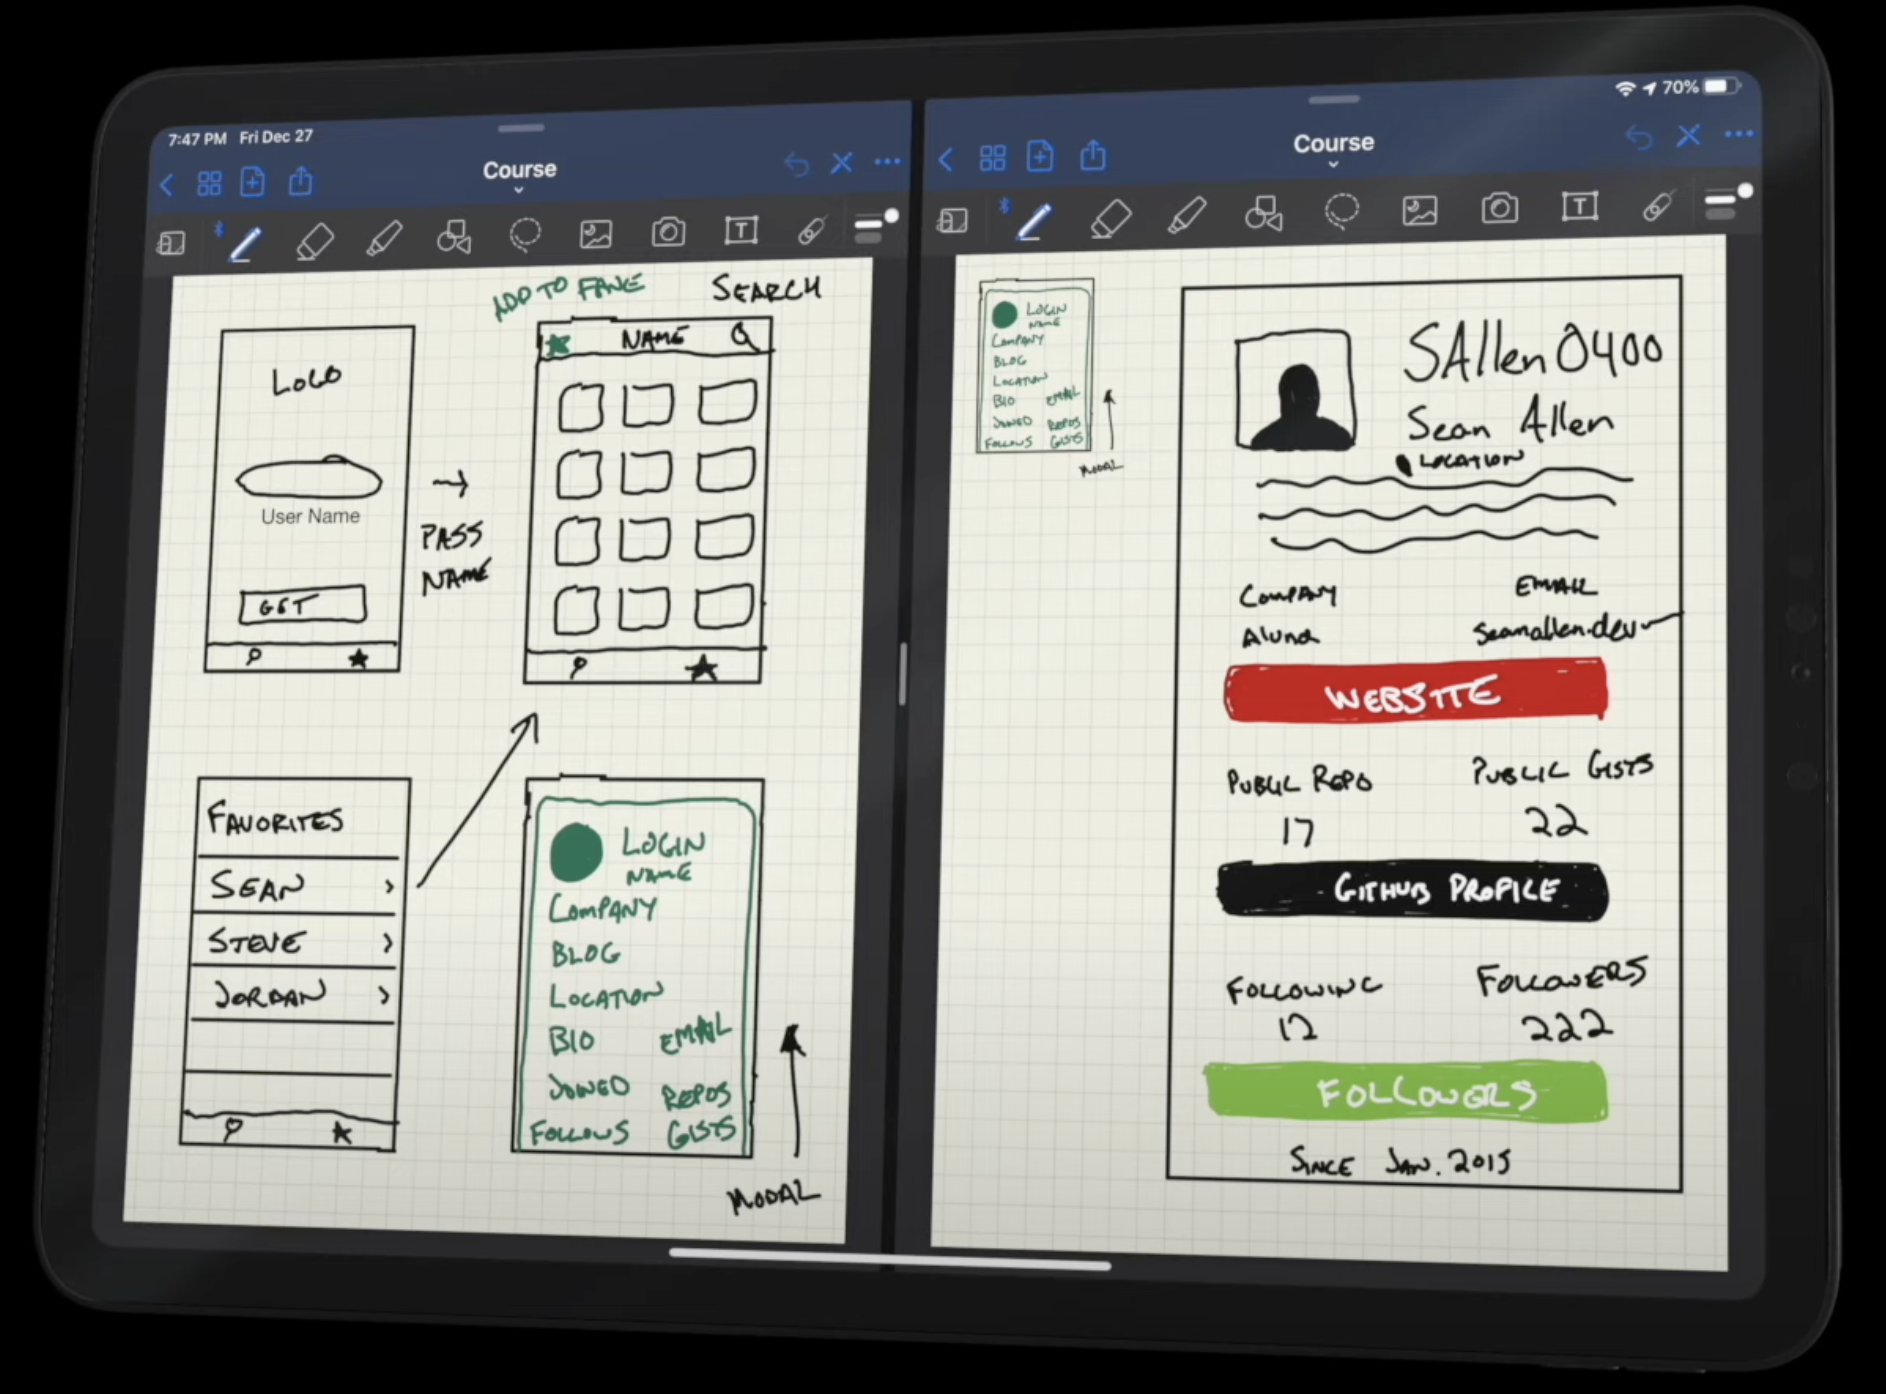 7:47 PM Fri Dec 27
70%
Course
T
ADD TO FAVE
SEARCH
LOGO
User Name
GET
PASS
NAME
NAME
FAVORITES
SEAN >
STEVE >
JORDAN >
LOGIN
NAME
COMPANY
BLOG
LOCATION
BIO EMAIL
JOINED REPOS
FOLLOWS GISTS
MODAL
Course
T
LOGIN
NAME
COMPANY
BLOG
LOCATION
BIO EMAIL
JOINED REPOS
FOLLOWS GISTS
MODAL
SAllen0400
Sean Allen
LOCATION
COMPANY EMAIL
Aluna seanallen.dev
WEBSITE
PUBLIC REPO PUBLIC GISTS
17 22
GITHUB PROFILE
FOLLOWING FOLLOWERS
12 222
FOLLOWERS
SINCE JAN. 2015